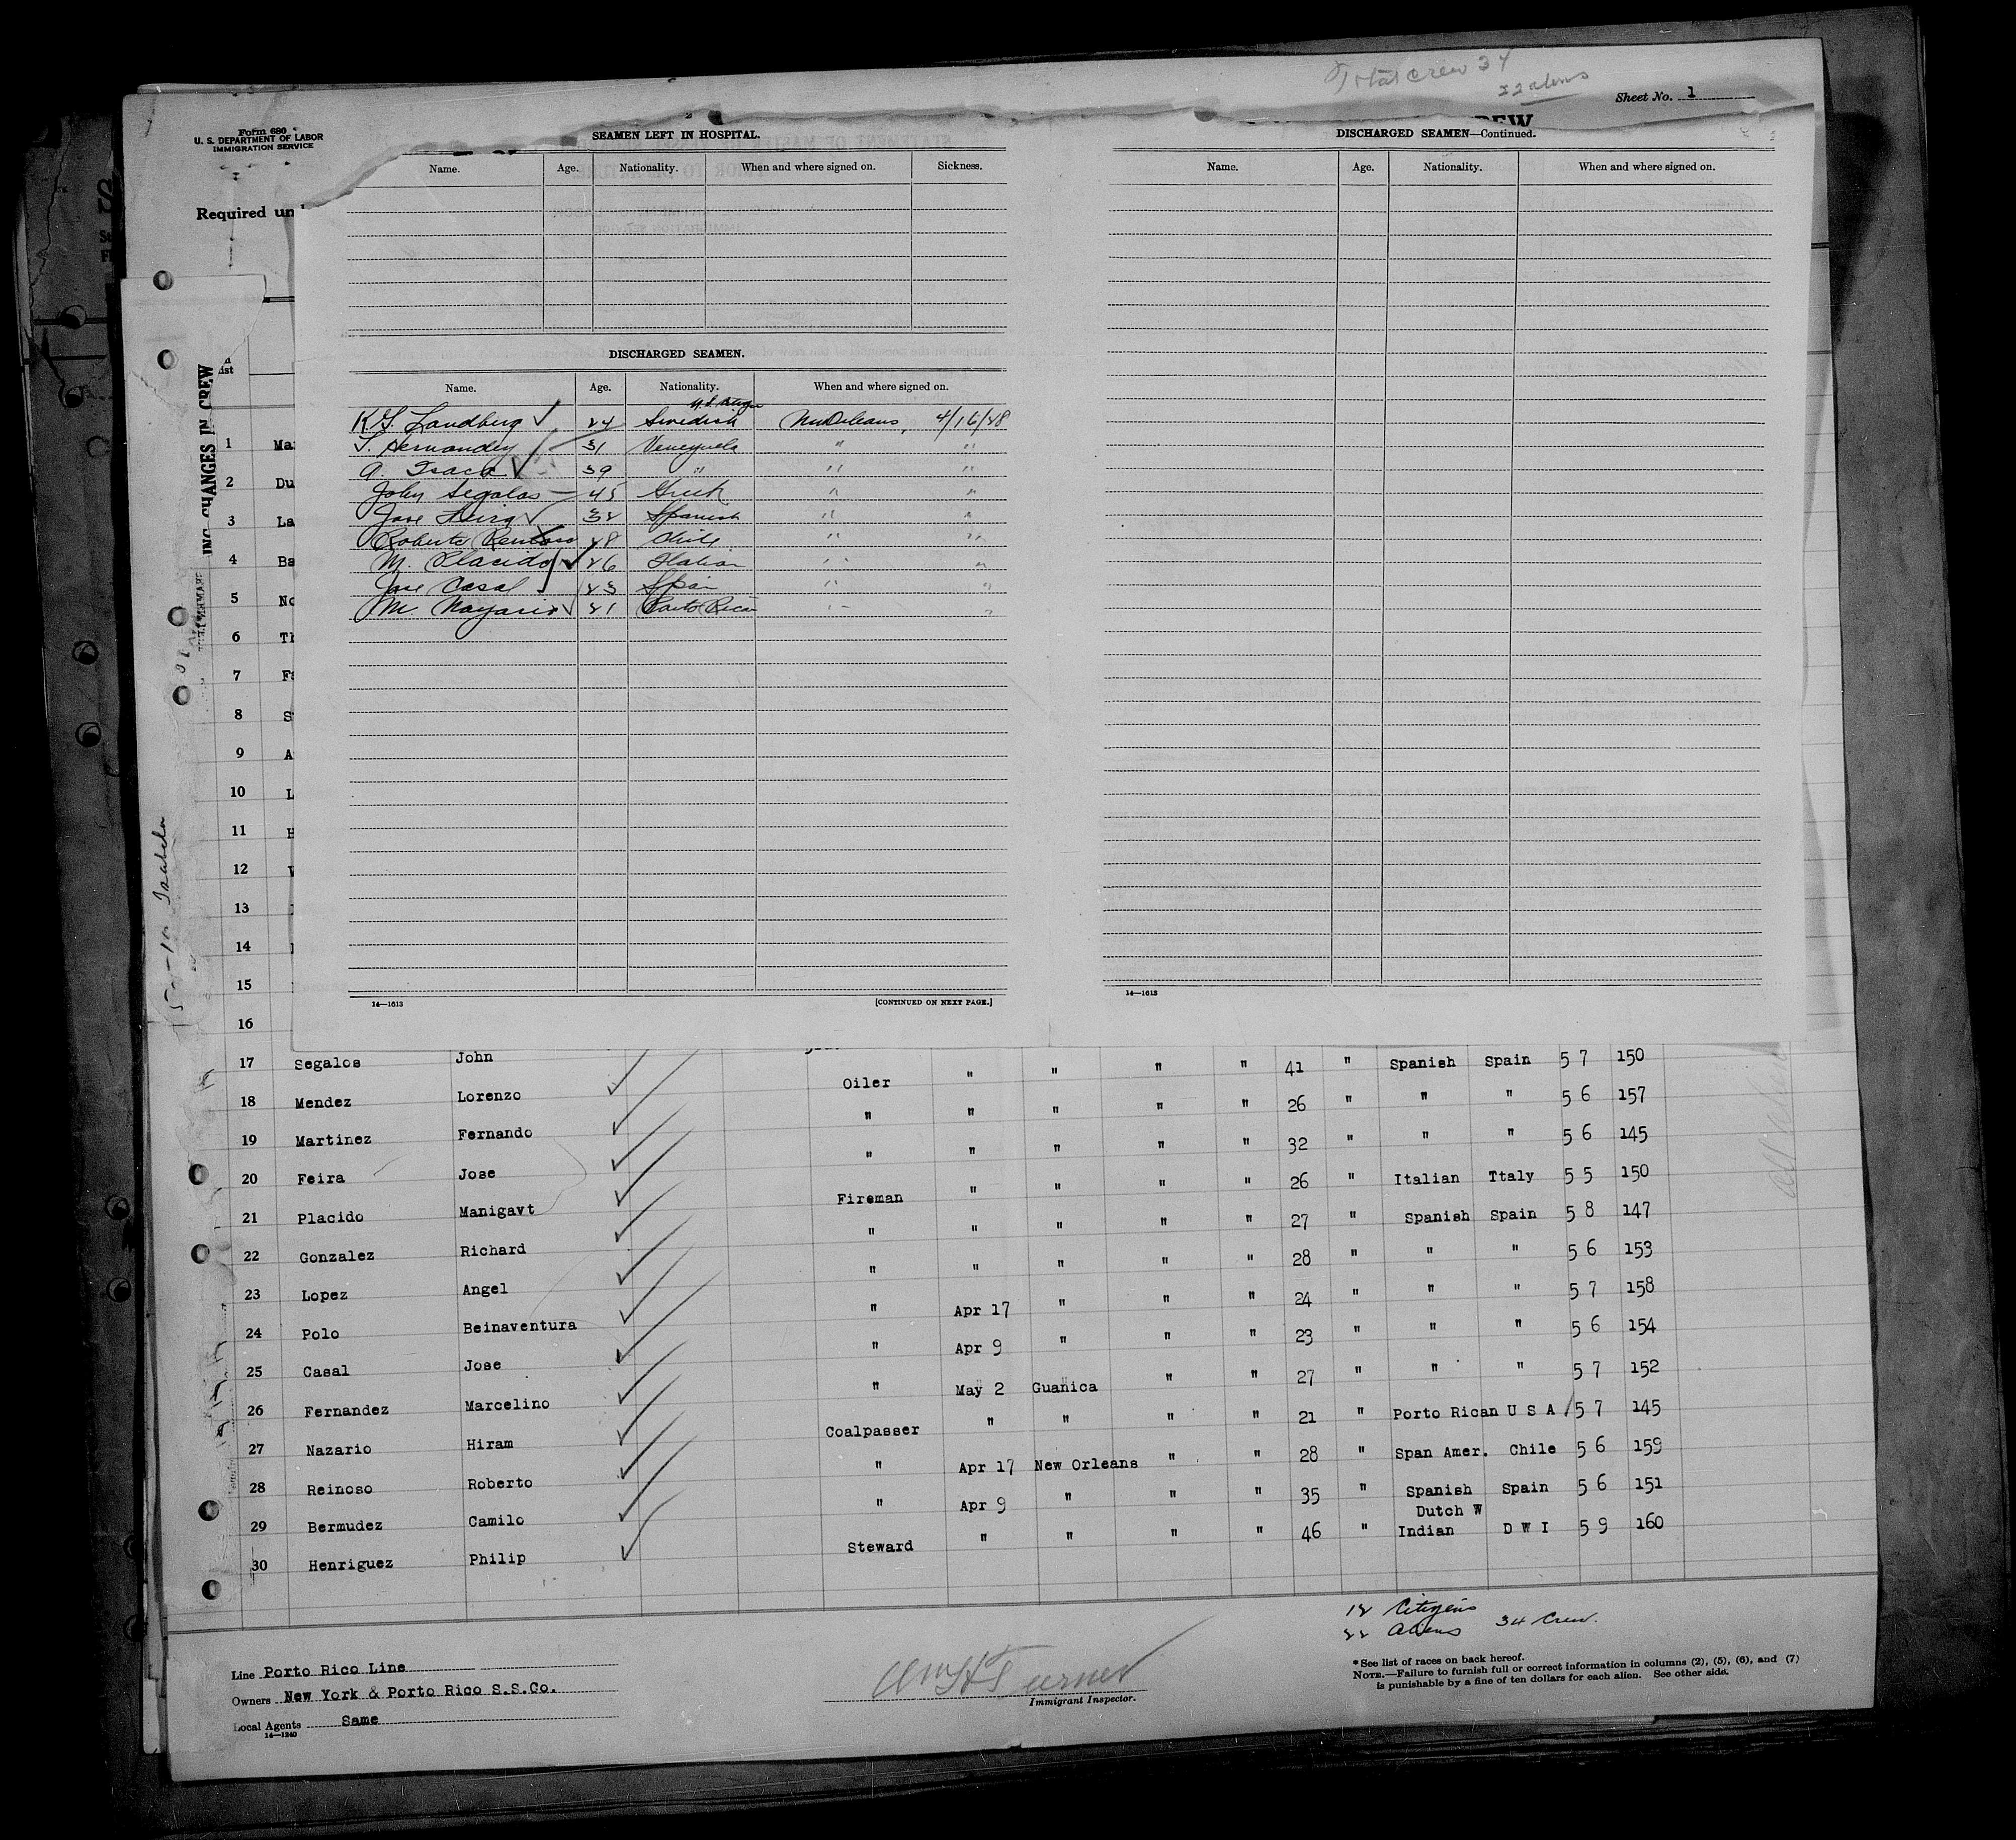 Total crew 34
22 aliens
Sheet No. 1
Form 680
U. S. DEPARTMENT OF LABOR
IMMIGRATION SERVICE
Required un
SEAMEN LEFT IN HOSPITAL.
Name. Age. Nationality. When and where signed on. Sickness.
DISCHARGED SEAMEN.
Name. Age. Nationality. When and where signed on.
K.G. Landberg 24 Swedish New Orleans, 4/16/28
T. Hernandez 31 Venezuela " "
A. Isaca 39 " " "
John Segalos 45 Greek " "
Jose Feira 32 Spanish " "
Roberto 28 Chile " "
M. Placido 26 Italian " "
Jose Casal 23 Spain " "
M. Nazario 21 Porto Rican " "
14—1613 [CONTINUED ON NEXT PAGE.]
DISCHARGED SEAMEN—Continued.
Name. Age. Nationality. When and where signed on.
14—1613
ING CHANGES IN CREW
Isabela
1 Ma
2 Du
3 La
4 Ba
5 No
6 Th
7 Fa
8 S
9 A
10 L
11 H
12
13
14
15
16
17 Segalos John
Oiler " " " " 41 " Spanish Spain 5 7 150
18 Mendez Lorenzo
" " " " " 26 " " " 5 6 157
19 Martinez Fernando
" " " " " 32 " " " 5 6 145
20 Feira Jose
Fireman " " " " 26 " Italian Ttaly 5 5 150
21 Placido Manigavt
" " " " " 27 " Spanish Spain 5 8 147
22 Gonzalez Richard
" " " " " 28 " " " 5 6 153
23 Lopez Angel
" Apr 17 " " " 24 " " " 5 7 158
24 Polo Beinaventura
" Apr 9 " " " 23 " " " 5 6 154
25 Casal Jose
" May 2 Guanica " " 27 " " " 5 7 152
26 Fernandez Marcelino
Coalpasser " " " " 21 " Porto Rican U S A 5 7 145
27 Nazario Hiram
" Apr 17 New Orleans " " 28 " Span Amer. Chile 5 6 159
28 Reinoso Roberto
" Apr 9 " " " 35 " Spanish Spain 5 6 151
29 Bermudez Camilo
Steward " " " " 46 " Dutch W Indian D W I 5 9 160
30 Henriguez Philip
12 Citizens
22 Aliens 34 Crew.
Line Porto Rico Line
Owners New York & Porto Rico S.S.Co.
Local Agents Same
14—1240
Wm H Turner
Immigrant Inspector.
* See list of races on back hereof.
NOTE.—Failure to furnish full or correct information in columns (2), (5), (6), and (7)
is punishable by a fine of ten dollars for each alien. See other side.